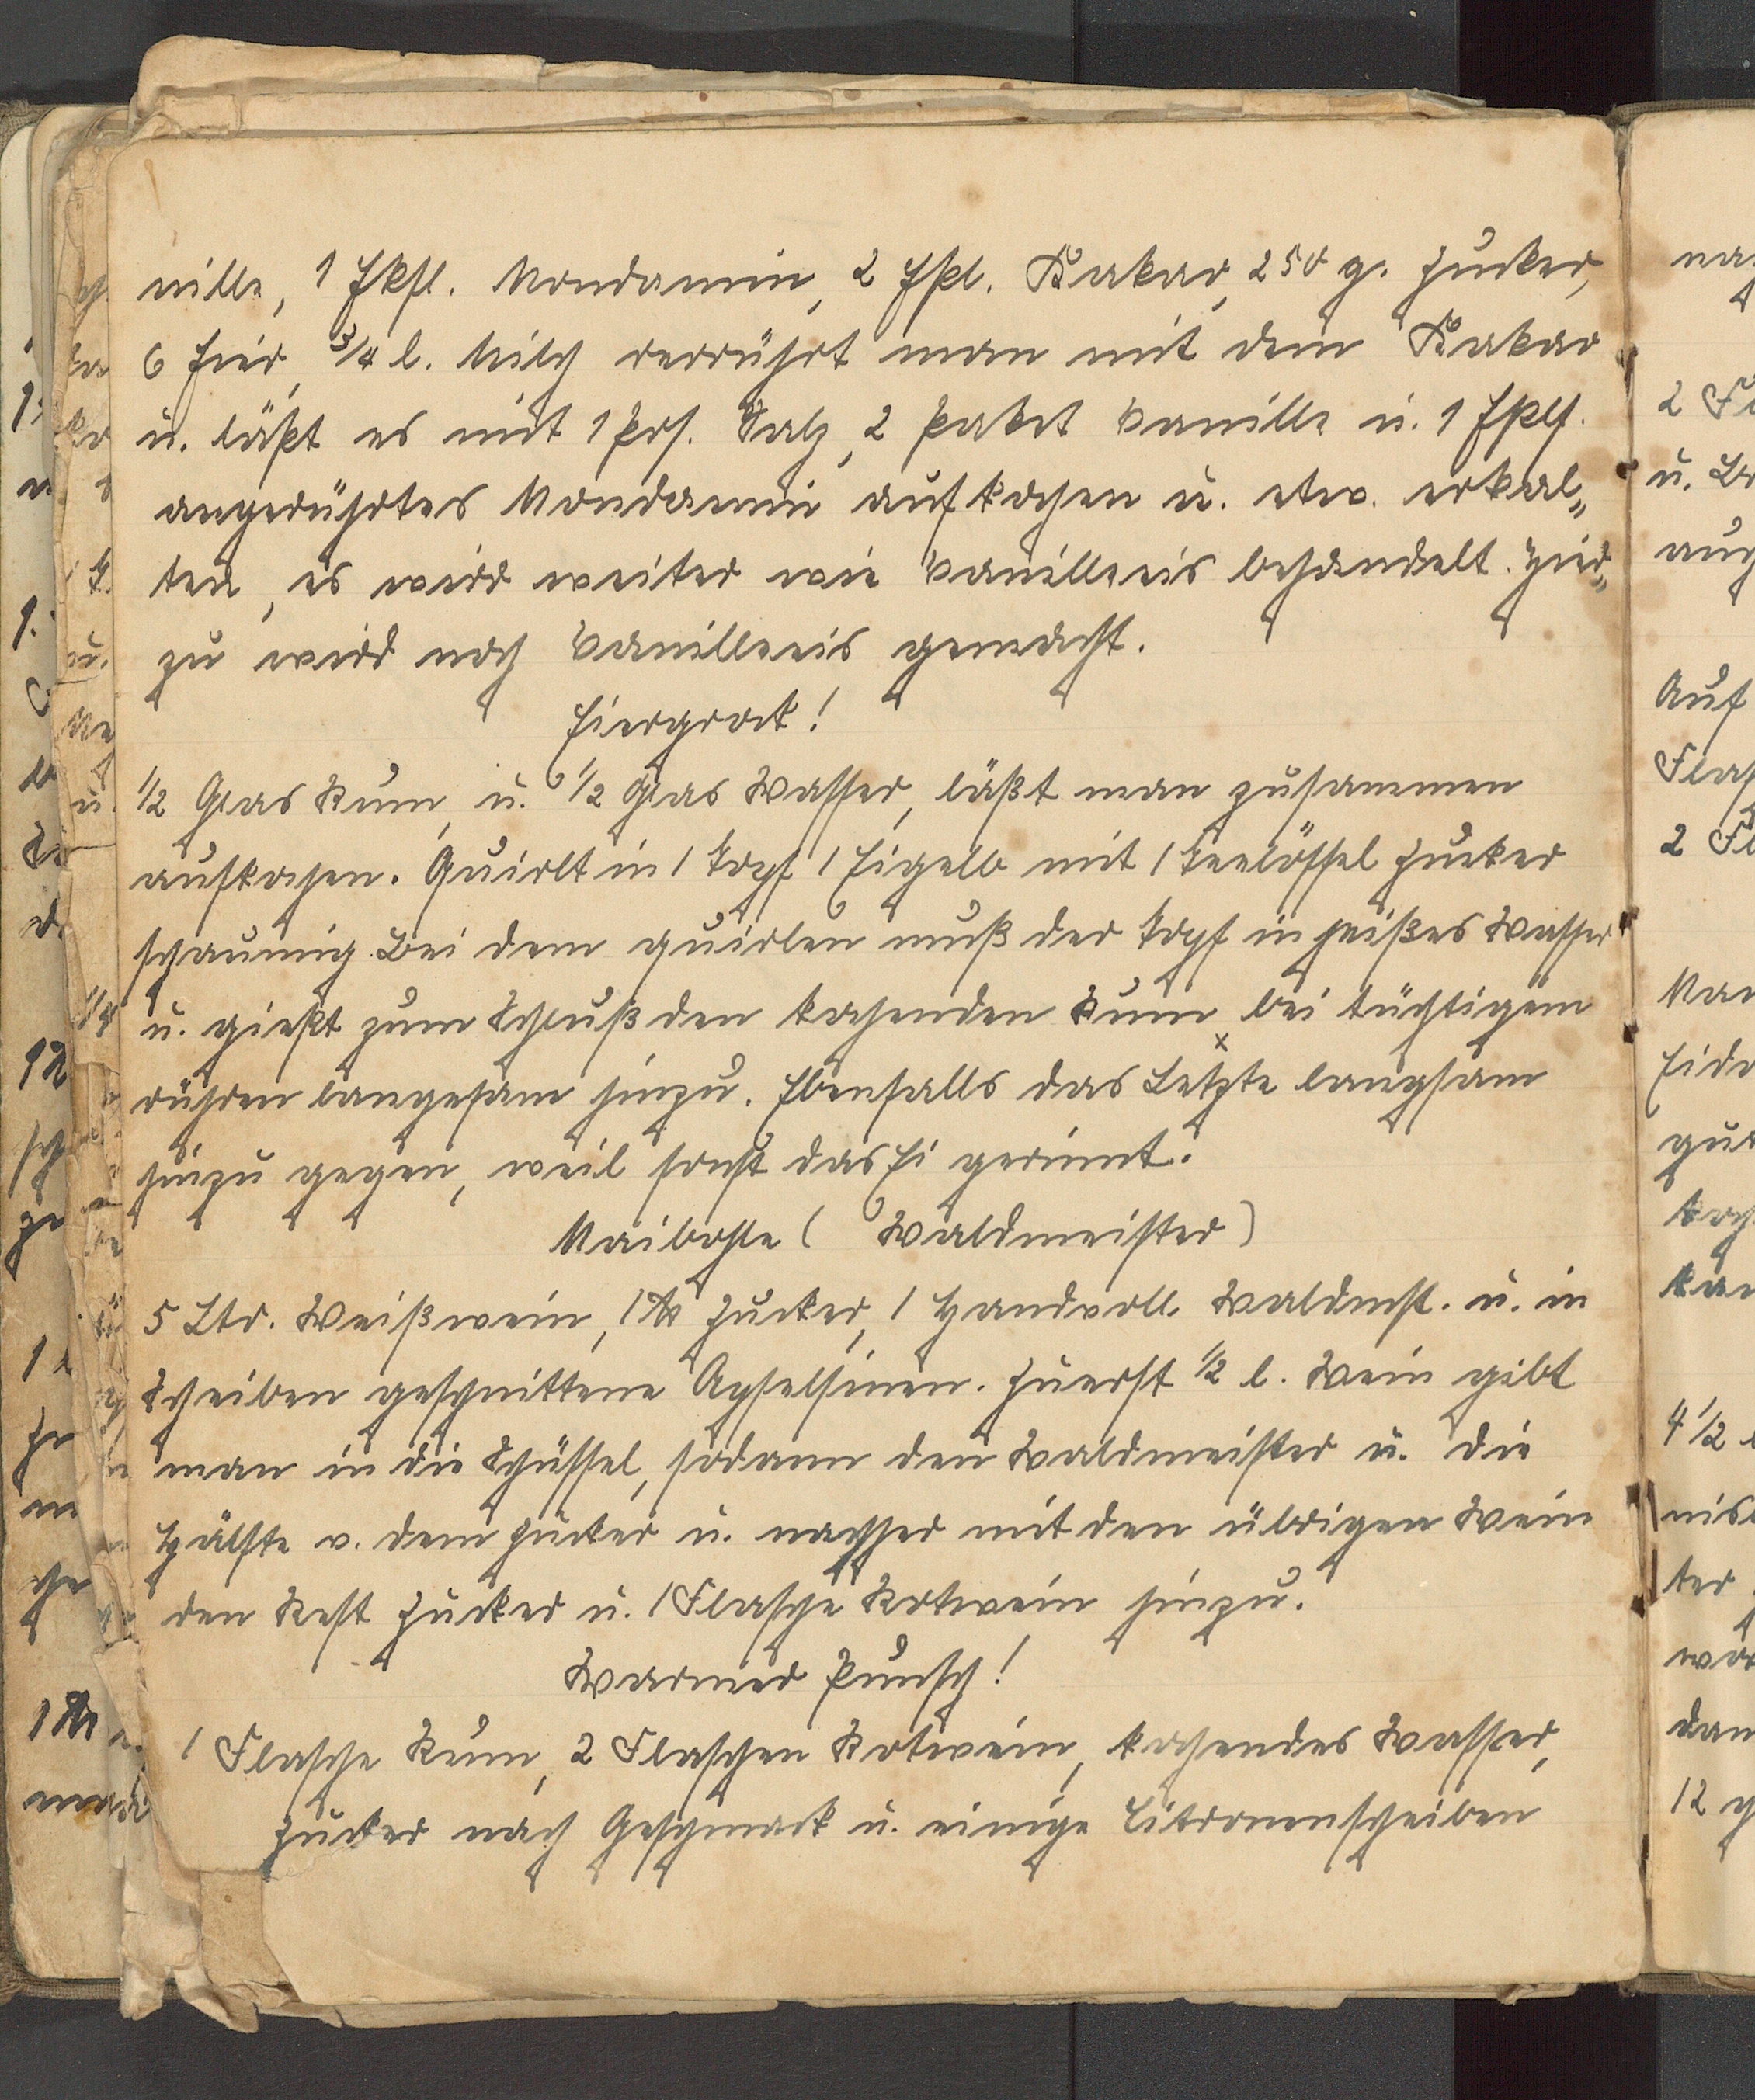 nille, 1 Eßfl. Mondamin, 2 Eßl. Kakao, 250 g. Zucker,
6 Eier, 3/4 l. Milch verrührt man mit dem Kakao
u. läßt es mit 1 Prs. Salz, 2 Paket Vanille u. 1 Eßlf.
angerührtes Mondamin aufkochen u. etw. erkal„
ten, es wird weiter wie Vanilleeis behandelt. Hier„
zu wird noch Vanilleeis gemacht.
Eiergrock!
1/2 Glas Rum, u. 1/2 Glas Wasser, läßt man zusammen
aufkochen. Quirlt in 1 Topf 1 Eigelb mit 1 Teelöffel Zucker
schaumig. Bei dem quirlen muß der Topf in heißes Wasser
u. gießt zum Schluß den kochenden Rum x bei tüchtigem
rühren langesam hinzu. Ebenfalls das Letzte langsam
hinzu gegen, weil sonst das Ei gerinnt.
Maibohle ( Waldmeister)
5 Ltr. Weißwein, 1 ℔ Zucker, 1 Handvoll. Waldmst. u. in
Scheiben geschnittene Apfelsinen. Zuerst 1/2 l. Wein gibt
man in die Schüssel, sodann den Waldmeister u. die
Hälfte v. dem Zucker u. nachher mit den übrigen Wein
den Rest Zucker u. 1 Flasche Rotwein hinzu.
Warmer Punsch!
1 Flasche Rum, 2 Flaschen Rotwein, kochendes Wasser,
Zucker nach Geschmack u. einige Citronenscheiben